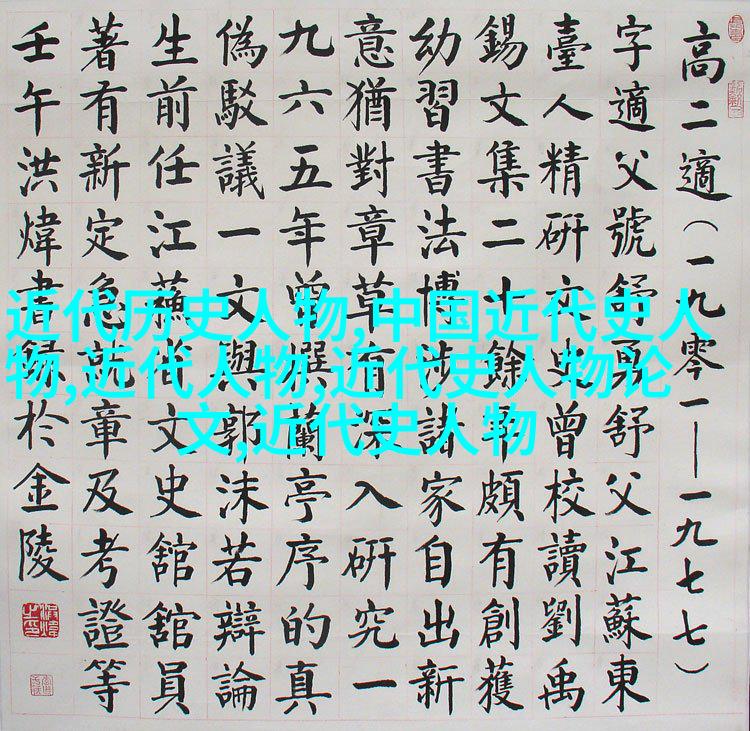 高二適（一九零一—一九七七）
字適父號舒勇舒父江蘇東
臺人精研文史曾校讀劉禹
錫文集二十餘年頗有創獲
幼習書法博涉諸家自出新
意猶對章草有深入研究一
九六五年曾撰蘭亭序的真
偽駁議一文與郭沫若辯論
生前任江蘇省文史舘舘員
著有新定急就章及考證等
壬午洪煒書錄於金陵
近代历史人物,中国近代史人
物,近代人物,近代史人物论
文,近代史人物